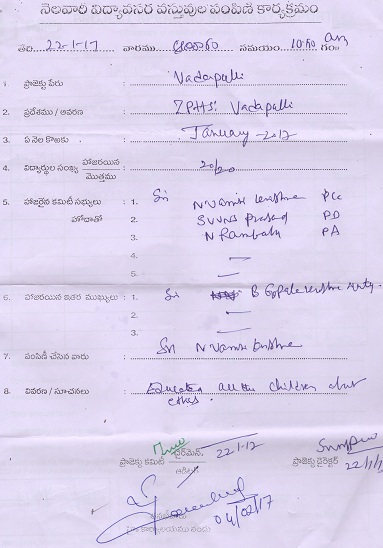 నెలవారి విద్యావసర వస్తువుల పంపిణి కార్యక్రమం
తేది 22-1-17 వారము సమయం 10.00 గం॥ am
1. ప్రాజెక్టు పేరు : Vadapalli
2. ప్రదేశము / ఆవరణ : ZPHS. Vadapalli
3. ఏ నెల కొఱకు : January - 2017
4. విద్యార్థుల సంఖ్య హాజరయిన : 20/20
మొత్తము
5. హాజరైన కమిటీ సభ్యులు : 1. Sri N Vamsi Krishna PCC
హోదాతో 2. SVVNS Prasad PD
3. N Rambabu PA
4. —
5. —
6. హాజరయిన ఇతర ముఖ్యులు : 1. Sri B Gopala Krishna Murty.
2. —
3. —
7. పంపిణీ చేసిన వారు : Sri N Vamsi Krishna
8. వివరణ / సూచనలు : Educated all the children about
ethics.
ప్రాజెక్టు కమిటీ చైర్‌మెన్ 22-1-17 ప్రాజెక్టు డైరెక్టర్
22/1/17
04/02/17